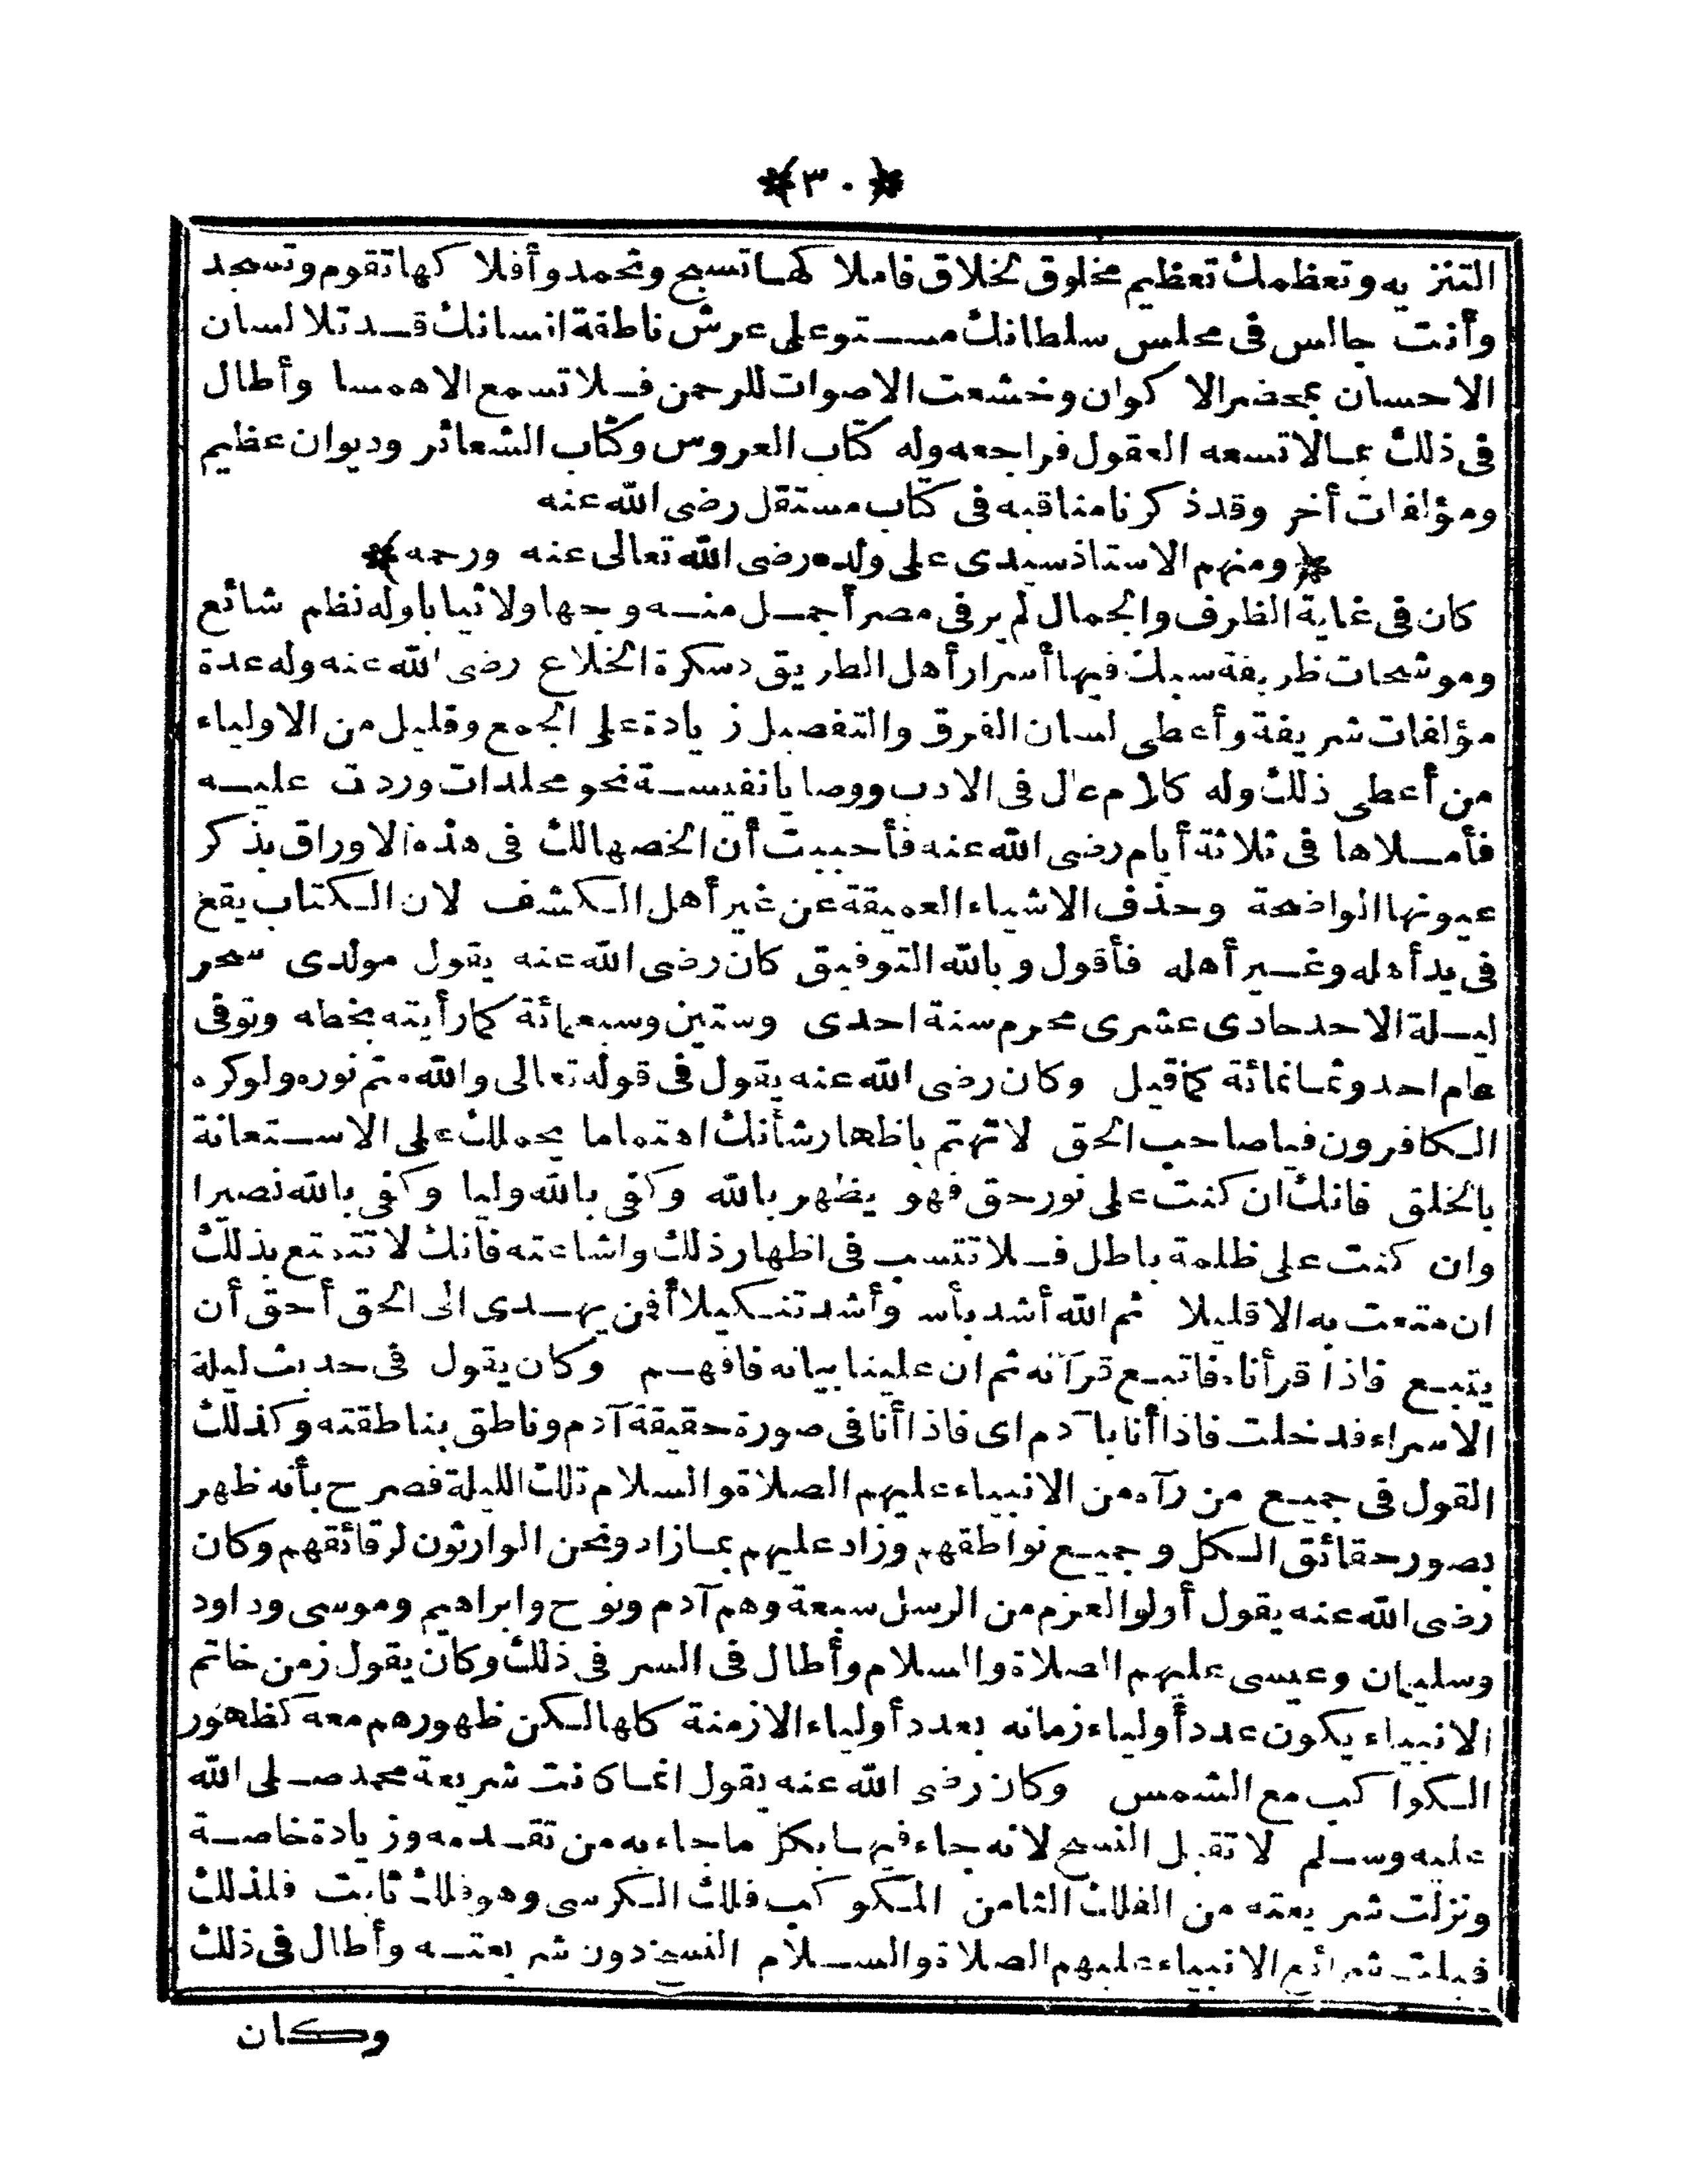 ﴿٣٠﴾
التنزيه وتعظمك تعظيم مخلوق لخلاق فاملاكها تسبح وتحمد وأفلاكها تقوم وتسجد
وأنت جالس فى مجلس سلطانك مستو على عرش ناطقة انسانك قد تلا لسان
الاحسان بمحضر الاكوان وخشعت الاصوات للرحمن فلا تسمع الا همسا وأطال
فى ذلك بما لا تسعه العقول فراجعه وله كتاب العروس وكتاب الشعائر وديوان عظيم
ومؤلفات أخر وقد ذكرنا مناقبه فى كتاب مستقل رضى الله عنه
﴿ومنهم الاستاذ سيدى على ولده رضى الله تعالى عنه ورحمه﴾
كان فى غاية الظرف والجمال لم ير فى مصر أجمل منه وجها ولا ثيابا وله نظم شائع
وموشحات ظريفة سبك فيها أسرار أهل الطريق دسكرة الخلاع رضى الله عنه وله عدة
مؤلفات شريفة وأعطى لسان الفرق والتفصيل زيادة على الجمع وقليل من الاولياء
من أعطى ذلك وله كلام عال فى الادب ووصايا نفيسة نحو مجلدات وردت عليه
فأملاها فى ثلاثة أيام رضى الله عنه فأحببت أن الخصها لك فى هذه الاوراق بذكر
عيونها الواضحة وحذف الاشياء العميقة عن غير أهل الكشف لان الكتاب يقع
فى يد أهله وغير أهله فأقول وبالله التوفيق كان رضى الله عنه يقول مولدى سحر
ليلة الاحد حادى عشرى محرم سنة احدى وستين وسبعمائة كما رأيته بخطه وتوفى
عام احد وثمانمائة كما قيل وكان رضى الله عنه يقول فى قوله تعالى والله متم نوره ولوكره
الكافرون فيا صاحب الحق لا تهتم باظهار شأنك اهتماما يحملك على الاستعانة
بالخلق فانك ان كنت على نور حق فهو يظهر بالله وكفى بالله وليا وكفى بالله نصيرا
وان كنت على ظلمة باطل فلا تتسبب فى اظهار ذلك واشاعته فانك لا تتمتع بذلك
ان متعت به الا قليلا ثم الله أشد بأسا وأشد تنكيلا أفمن يهدى الى الحق أحق أن
يتبع فاذا قرأناه فاتبع قرآنه ثم ان علينا بيانه فافهم وكان يقول فى حديث ليلة
الاسراء فدخلت فاذا أنا بآدم اى فاذا أنا فى صورة حقيقة آدم وناطق بناطقته وكذلك
القول فى جميع من رآه من الانبياء عليهم الصلاة والسلام تلك الليلة فصرح بأنه ظهر
بصور حقائق الكل وجميع نواطقهم وزاد عليهم بما زاد ونحن الوارثون لرقائقهم وكان
رضى الله عنه يقول أولوالعزم من الرسل سبعة وهم آدم ونوح وابراهيم وموسى وداود
وسليمان وعيسى عليهم الصلاة والسلام وأطال فى السر فى ذلك وكان يقول زمن خاتم
الانبياء يكون عدد أولياء زمانه بعدد أولياء الازمنة كلها لكن ظهورهم معه كظهور
الكواكب مع الشمس وكان رضى الله عنه يقول انما كانت شريعة محمد صلى الله
عليه وسلم لا تقبل النسخ لانه جاء فيها بكل ما جاء به من تقدمه وزيادة خاصة
ونزلت شريعته من الفلك الثامن المكوكب فلك الكرسى وهو فلك ثابت فلذلك
قبلت شرائع الانبياء عليهم الصلاة والسلام النسخ دون شريعته وأطال فى ذلك
وكان